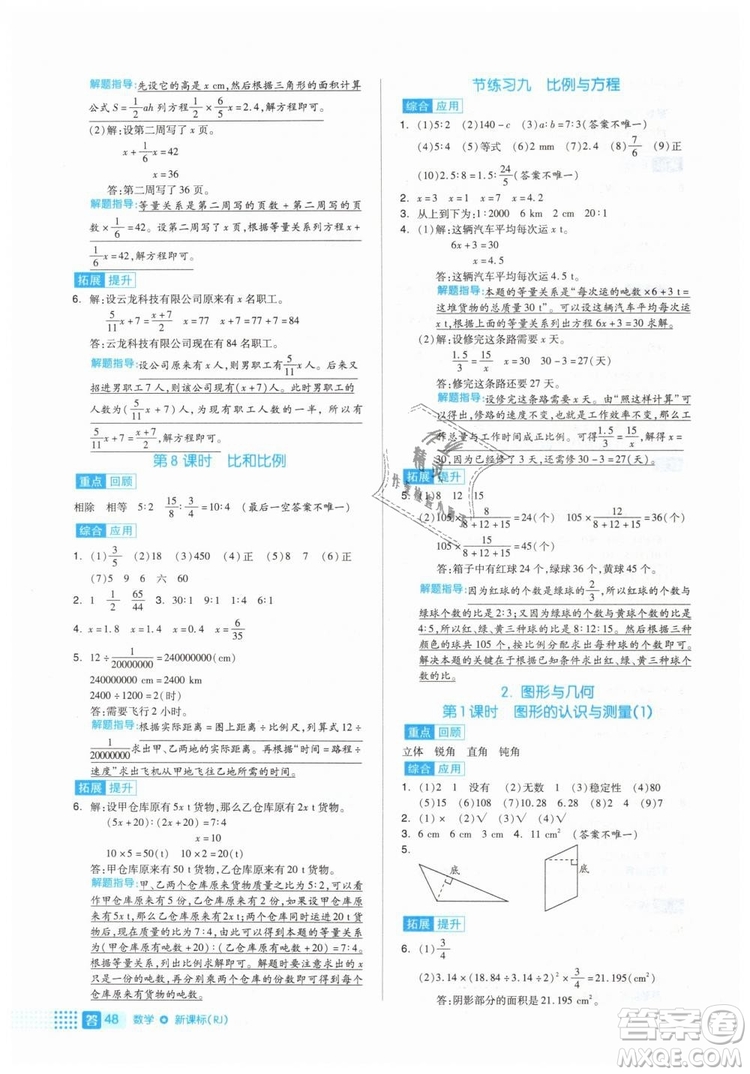 解题指导:先设它的高是 x cm,然后根据三角形的面积计算
公式 S = 1/2 ah 列方程 1/2 × 6/5 x = 2.4,解方程即可。
(2)解:设第二周写了 x 页。
x + 1/6 x = 42
x = 36
答:第二周写了 36 页。
解题指导:等量关系是第二周写的页数 + 第二周写的页
数 × 1/6 = 42。设第二周写了 x 页,根据等量关系列方程 x +
1/6 x = 42,解方程即可。
拓展 提升
6. 解:设云龙科技有限公司原来有 x 名职工。
5/11 x + 7 = (x+7)/2 x = 77 x + 7 = 84
答:云龙科技有限公司现在有 84 名职工。
解题指导:设公司原来有 x 人,则男职工有 5/11 x 人,后来招
进男职工 7 人,这时男职工有 (5/11 x + 7) 人,又因为男职工
人数占 (x+7)/2,而这时公司总人数为 (x + 7) 人。所以
5/11 x + 7 = (x+7)/2,解方程即可。
第 8 课时 比和比例
重点 回顾
相除 相等 5∶2 15/8∶3/4 (最后一空答案不唯一)
综合 应用
1. (1) 3/5 (2)18 (3)450 (4)正 (5)8 7 (6)正
(7)5 9 6 六 60
2. 1 1/2 65/44 3. 30∶1 9∶1
4. x = 1.8 x = 4 x = 6/35
5. 12 ÷ 1/20000000 = 240000000(cm)
240000000 cm = 2400 km
2400 ÷ 1200 = 2(时)
答:需要飞行 2 小时。
解题指导:根据实际距离 = 图上距离 ÷ 比例尺,列算式 12 ÷
1/20000000 求出甲、乙两地的实际距离。再根据“时间 = 路程 ÷
速度”求出飞机从甲地飞往乙地的时间。
拓展 提升
6. 解:设甲仓库原有 5x t 货物,那么乙仓库原有 2x t 货物。
(5x + 20)∶(2x + 20) = 7∶4
x = 10
10 × 5 = 50(t) 10 × 2 = 20(t)
答:甲仓库原有货物 50 t,乙仓库原有货物 20 t。
解题指导:甲、乙两个仓库原来货物质量之比为 5∶2,可以
看作甲仓库原有 5 份,乙仓库原有 2 份。设甲仓库原有
5x t,那么乙仓库原有 2x t。两个仓库同时运进 20 t 货物后
的质量之比是 7∶4,由此可得出本题的等量关系为(甲仓
库原有吨数 + 20)∶(乙仓库原有吨数 + 20) = 7∶4。根据这
个等量关系列出方程即可解答。解题时要注意求出的 x
只是一份的吨数,再分别乘两个仓库的份数即可求出两
个仓库原有货物的吨数。
答 48 数学 新课标(RJ)
节练习九 比例与方程
综合 应用
1. (1)5∶2 (2)140 - c (3)a∶b = 7∶3(答案不唯一)
(4)5∶4 (5)等式 (6)2 mm (7)2.4 (8) 7/6 (9)正
(10)2.5∶0.8 = 1.5∶24/5(答案不唯一)
2. x = 3 x = 1 x = 7 x = 4.2
3. 从上到下为:1∶2000 6 km 2 cm 20∶1
4. (1)解:设这辆汽车平均每次运 x t。
6x + 3 = 30
x = 4.5
答:这辆汽车平均每次运 4.5 t。
解题指导:本题的等量关系是“每次运的吨数 × 6 + 3 t =
这堆货物的总质量 30 t”。可以设这辆汽车平均每次运
x t,根据上面的等量关系列出方程 6x + 3 = 30 解答。
(2)解:设修完这条路需要 x 天。
1.5/3 = 15/x x = 30 30 - 3 = 27(天)
答:修完这条路还需要 27 天。
解题指导:设修完这条路需要 x 天。由“照这样计算”可
以得出,修路的速度不变,也就是工作效率不变。那么工
作总量与工作时间成正比例。所以 1.5/3 = 15/x,解得 x =
30,因为已经修了 3 天,所以还需修 30 - 3 = 27(天)。
拓展 提升
5. (1)8 12 15
(2)105 × 8/(8+12+15) = 24(个) 105 × 12/(8+12+15) = 36(个)
105 × 15/(8+12+15) = 45(个)
答:箱子中有红球 24 个,绿球 36 个,黄球 45 个。
解题指导:因为红球的个数是绿球的 2/3,所以红球个数与
绿球个数的比是 2∶3,又因为绿球个数与黄球个数的比是
4∶5,所以红、绿、黄三种球的比是 8∶12∶15。又因为三种
颜色的球共 105 个,根据三种球的个数比,按比例分配。
解决本题的关键在于根据已知条件求出三种球的个数比。
2. 图形与几何
第 1 课时 图形的认识与测量(1)
重点 回顾
立体 锐角 直角 钝角
综合 应用
1. (1)2 1 没有 (2)无数 1 (3)稳定性 (4)80
(5)15 (6)12 (7)18
2. (1)× (2)√ (3)√ (4)√
3. 6 cm 6 cm 4. 11 cm² (答案不唯一)
5.
底
底
拓展 提升
6. (1) 3/4
(2)3.14 × (18.84 ÷ 3.14 ÷ 2)² × 3/4 = 21.195(cm²)
答:阴影部分的面积是 21.195 cm²
作业精灵
答案圈
MXQE.COM